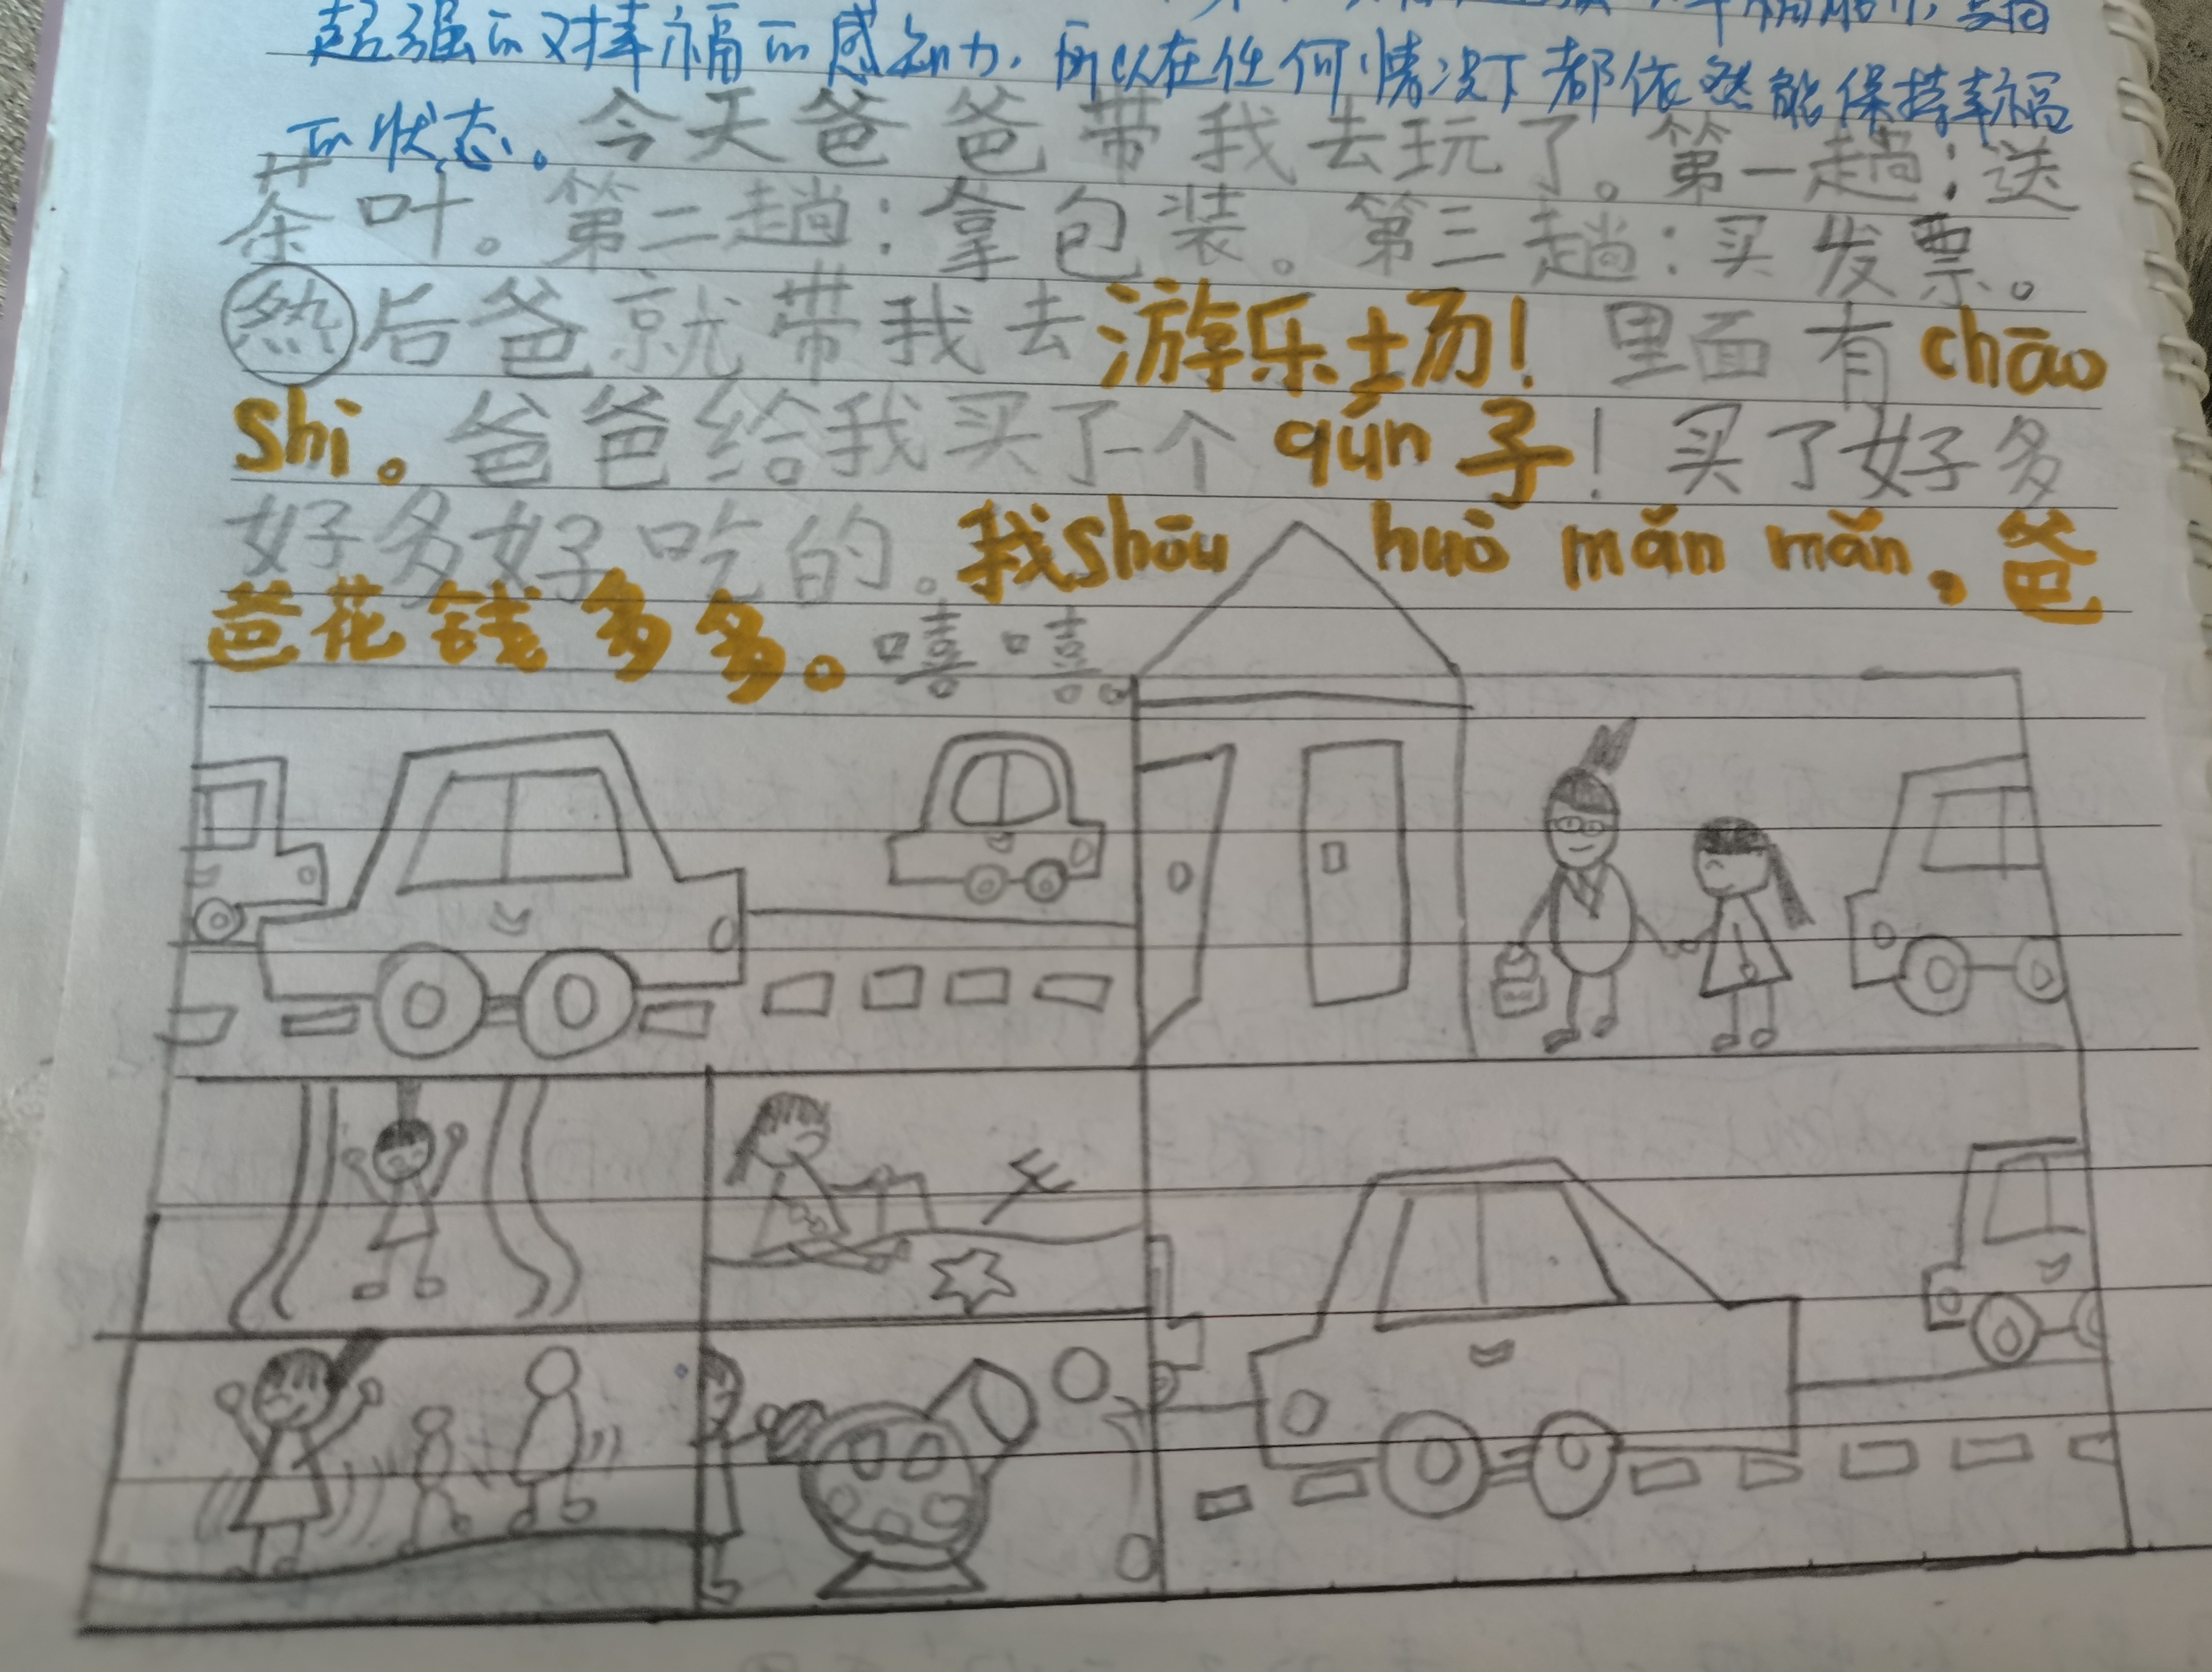 超强的对幸福的感知力，所以在任何情况下都依然能保持幸福
的状态。今天爸爸带我去玩了。第一趟：送
茶叶。第二趟：拿包装。第三趟：买发票。
然后爸就带我去游乐场！里面有chāo
shì。爸爸给我买了一个qún子！买了好多
好多好好吃的。我shōu huò mǎn mǎn，爸
爸花钱多多。嘻嘻。